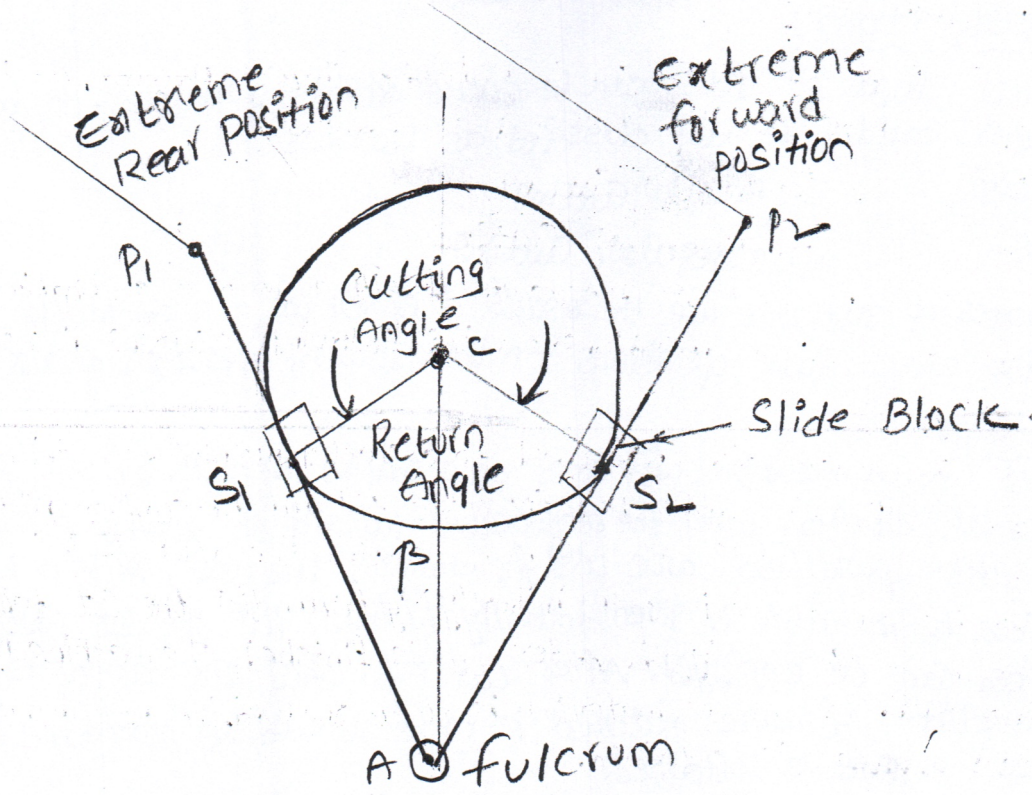 Extreme
Rear position
Extreme
forward
position
P1
P2
Cutting
Angle
C
Return
Angle
Slide Block
S1
S2
β
A
fulcrum